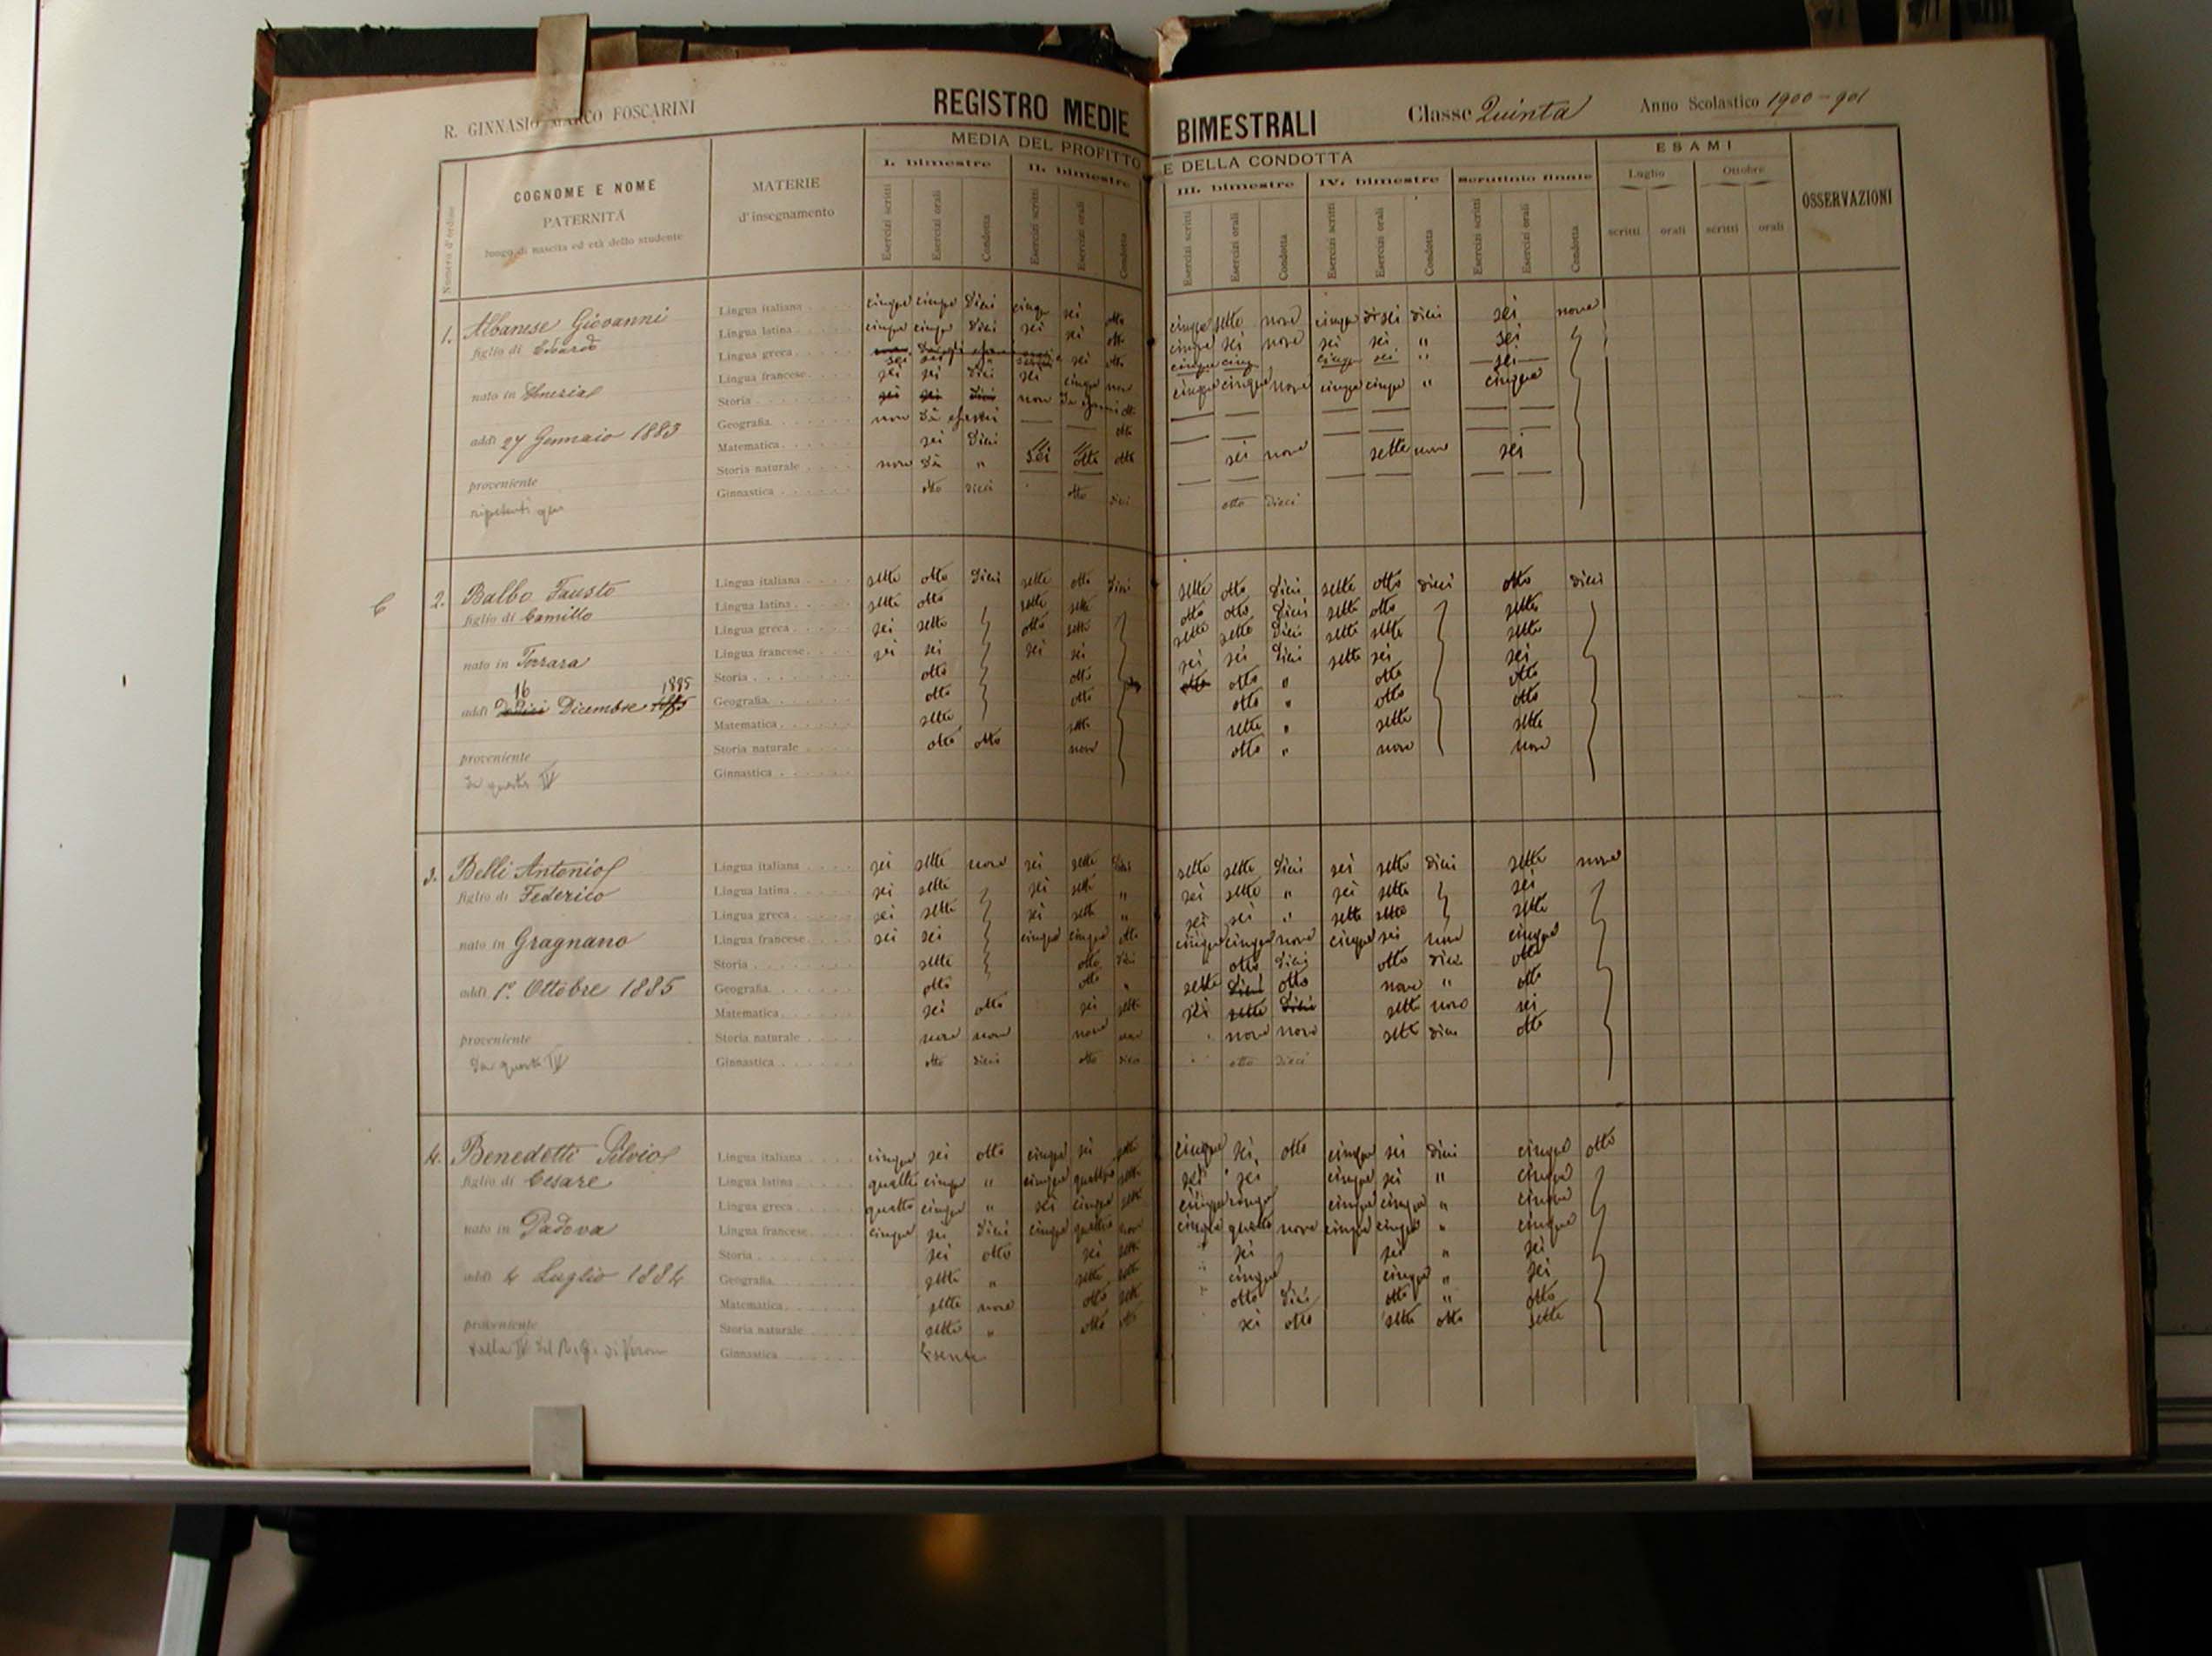 R. GINNASIO MARCO FOSCARINI
REGISTRO MEDIE BIMESTRALI
Classe Quinta
Anno Scolastico 1900-901
Numero d'ordine
COGNOME E NOME
PATERNITÀ
luogo di nascita ed età dello studente
MATERIE
d'insegnamento
MEDIA DEL PROFITTO E DELLA CONDOTTA
I. bimestre II. bimestre III. bimestre IV. bimestre Scrutinio finale
Esercizi scritti Esercizi orali Condotta Esercizi scritti Esercizi orali Condotta Esercizi scritti Esercizi orali Condotta Esercizi scritti Esercizi orali Condotta Esercizi scritti Esercizi orali Condotta
ESAMI
Luglio Ottobre
scritti orali scritti orali
OSSERVAZIONI
1. Albanese Giovanni
figlio di
nato in Venezia
addì 27 Gennaio 1883
proveniente
Lingua italiana cinque cinque Dieci cinque sei otto cinque sette nove cinque sei dieci sei nove
Lingua latina cinque cinque Dieci sei sei otto cinque sei nove sei sei " sei
Lingua greca sei otto cinque cinque cinque sei " sei
Lingua francese sei sei Dieci sei cinque nove cinque cinque nove cinque cinque " cinque
Storia sei sei Dieci non Dà esami otto
Geografia non Dà esami otto
Matematica sei Dieci sei otto otto sei nove sette nove sei
Storia naturale non Dà "
Ginnastica otto dieci otto dieci otto dieci
2. Balbo Fausto
figlio di Camillo
nato in Ferrara
addì 16 Dicembre 1885
proveniente
da questa IV
Lingua italiana sette otto Dieci sette otto Dieci sette otto Dieci sette otto dieci otto dieci
Lingua latina sette otto sette sette otto otto Dieci sette otto sette
Lingua greca sei sette otto sette sette sette Dieci sette sette sette
Lingua francese sei sei sei sei sei sei Dieci sette sei sei
Storia otto otto otto otto " otto otto
Geografia otto otto otto " otto otto
Matematica sette sette sette " sette sette
Storia naturale otto otto nove otto " nove nove
Ginnastica
3. Belli Antonio
figlio di Federico
nato in Gragnano
addì 1° Ottobre 1885
proveniente
da questa IV
Lingua italiana sei sette nove sei sette Dieci sette sette Dieci sei sette dieci sette nove
Lingua latina sei sette sei sette " sei sette " sei sette sei
Lingua greca sei sette sei sette " sei sei " sette sette sette
Lingua francese sei sei cinque cinque otto cinque cinque nove cinque sei nove cinque
Storia sette otto Dieci otto Dieci otto dieci otto
Geografia otto otto " sette Dieci otto nove " otto
Matematica sei otto sei sette sei sette Dieci sette nove sei
Storia naturale nove nove nove nove nove nove sette dieci otto
Ginnastica otto dieci otto dieci otto dieci
4. Benedetti Silvio
figlio di Cesare
nato in Padova
addì 4 Luglio 1884
proveniente
dalla IV del R. G. di Verona
Lingua italiana cinque sei otto cinque sei sette cinque sei otto cinque sei dieci cinque otto
Lingua latina quattro cinque " cinque quattro sette sei sei cinque sei " cinque
Lingua greca quattro cinque " sei cinque sette cinque cinque cinque cinque " cinque
Lingua francese cinque sei Dieci cinque quattro nove cinque quattro nove cinque cinque " cinque
Storia sei otto sei sette sei sei " sei
Geografia sette " sette sette cinque cinque " sei
Matematica sette nove otto sette otto Dieci otto " otto
Storia naturale sette " otto otto sei otto sette otto sette
Ginnastica Esente